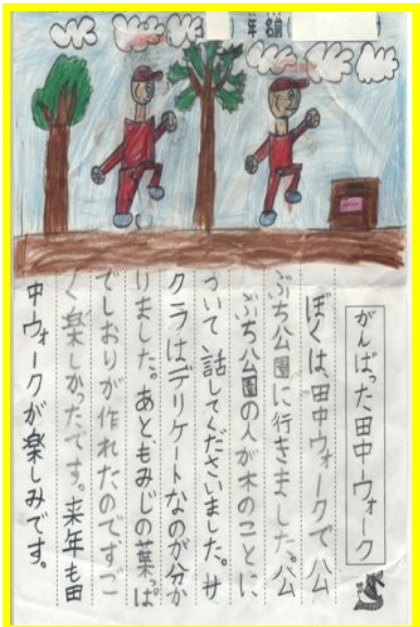 年 名前( )
がんばった田中ウォーク
ぼくは、田中ウォークで、公
ぶち公園に行きました。公
ぶち公園の人が木のことに
ついて話してくださいました。サ
クラはデリケートなのが分か
りました。あと、もみじの葉っぱ
でしおりが作れたのですご
く楽しかったです。来年も田
中ウォークが楽しみです。